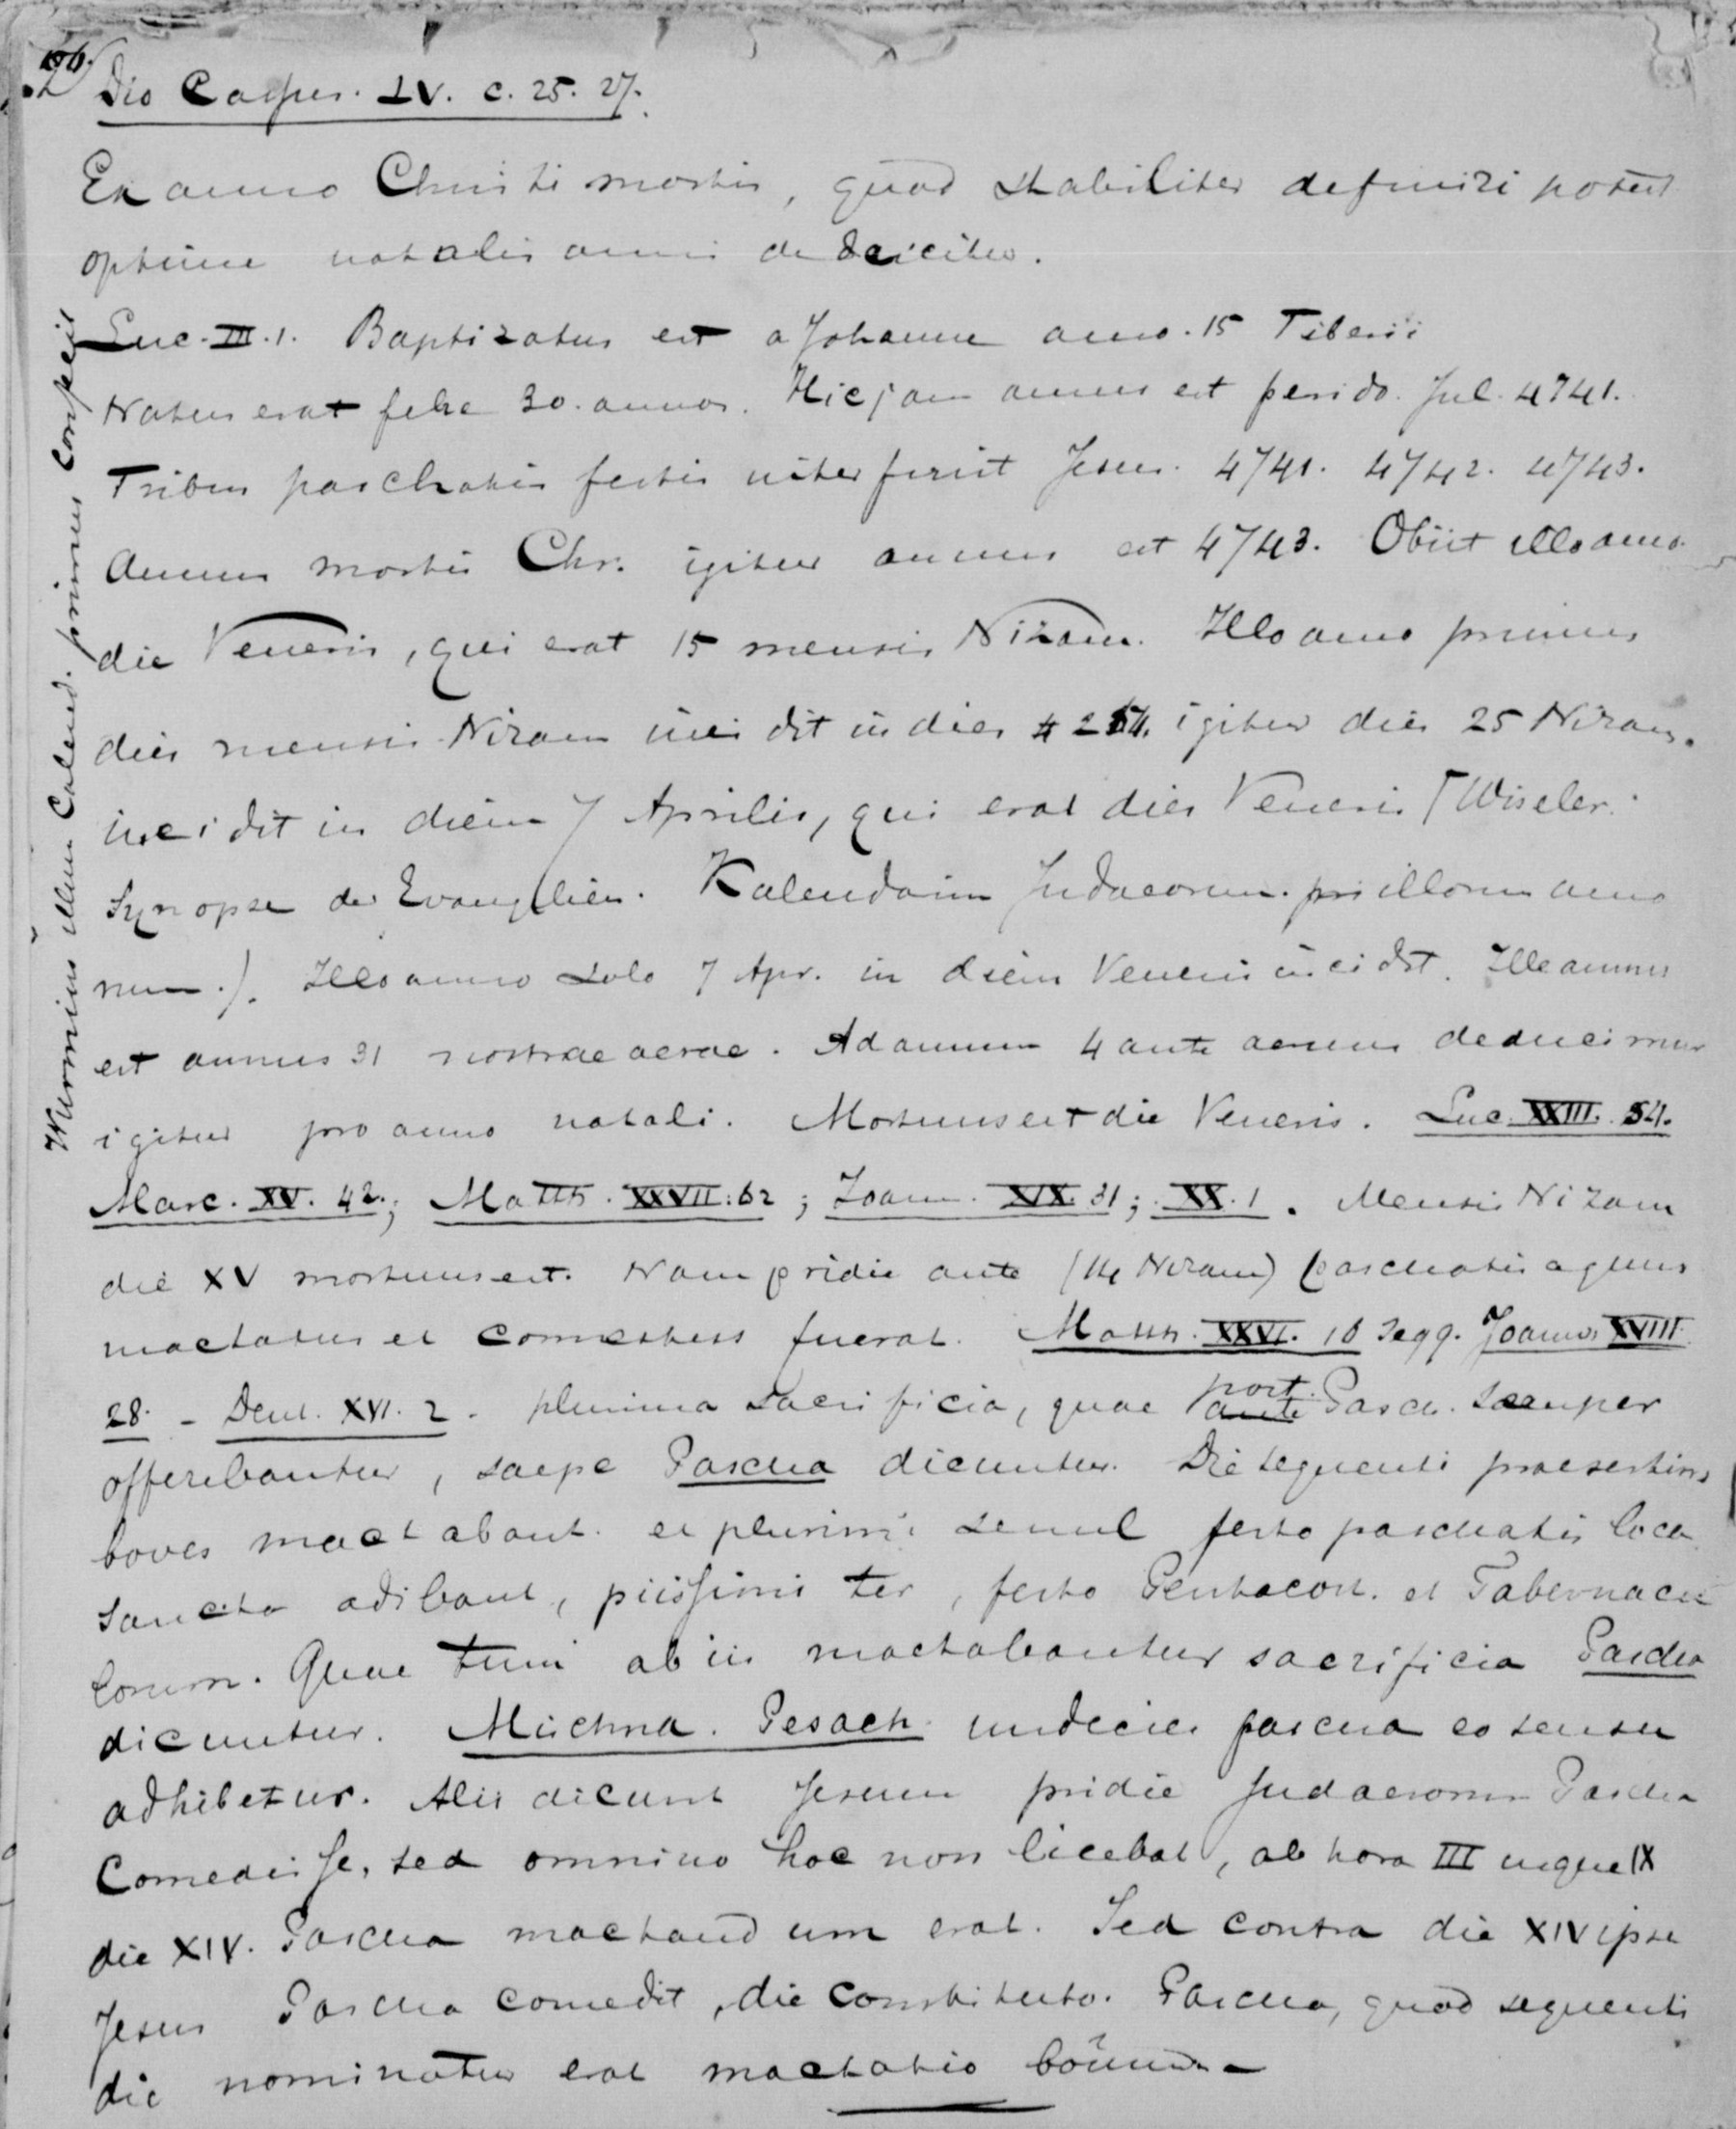 26.
Dio Cassius. LV. c. 25. 27.
Ex anno Christi mortis, quod stabiliter definiri potest
optime natalis anni deducitur.
Luc. III. 1. Baptizatus est a Johanne anno. 15 Tiberii
Natus erat fere 30. annos. Hic jam annus est perido. Jul. 4741.
Tribus paschatis festis interfuit Jesus. 4741. 4742. 4743.
Annus mortis Chr. igitur annus est 4743. Obiit illo anno
die Veneris, qui erat 15 mensis Nizam. Illo anno primus
dies mensis Nizam incidit in dies igitur dies 25 Nizam.
incidit in diem 7 Aprilis, qui erat dies Veneris (Wiseler.
Synopse der Evangelien. Kalendarim Judaeorum. pri illorum anno
rum.). Illo anno solo 7 Apr. in diem Veneris incidit. Ille annus
est annus 31 nostrae aerae. Ad annum 4 ante aeram deducimur
igitur pro anno natali. Mortuus est die Veneris. Luc. XXIII. 54.
Marc. XV. 42.; Matth. XXVII: 62; Joann. XIX. 31; XX. 1. Mensis Nizam
die XV mortuus est. Nam pridie ante (14 Nizam) paschatis agnus
mactatus et comestus fuerat. Matth. XXVI. 16 seqq. Joanns XVIII.
28. - Deut. XVI. 2. plurima sacrificia, quae post ante Pasch. semper
offerebantur, saepe Pascha dicuntur. Die sequenti praesertim
boves mactabant. et plurimi semel festo paschatis loca
sancta adibant, piissimi ter, festo Pentacost. et Tabernacu
lorum. Quae tum ab iis mactabantur sacrificia Pascha
dicuntur. Mischna. Pesach. undecies pascha eo sensu
adhibetur. Alii dicunt Jesum pridie Judaeorum Pascha
Comedisse, sed omnino hoc non licebat, ab hora III usque IX
die XIV. Pascha mactandum erat. Sed contra die XIV ipse
Jesus Pascha comedit, die constituto. Pascha, quod sequenti
die nominatur erat mactatio boum.
Wurmius illum Calend. primus Confecit